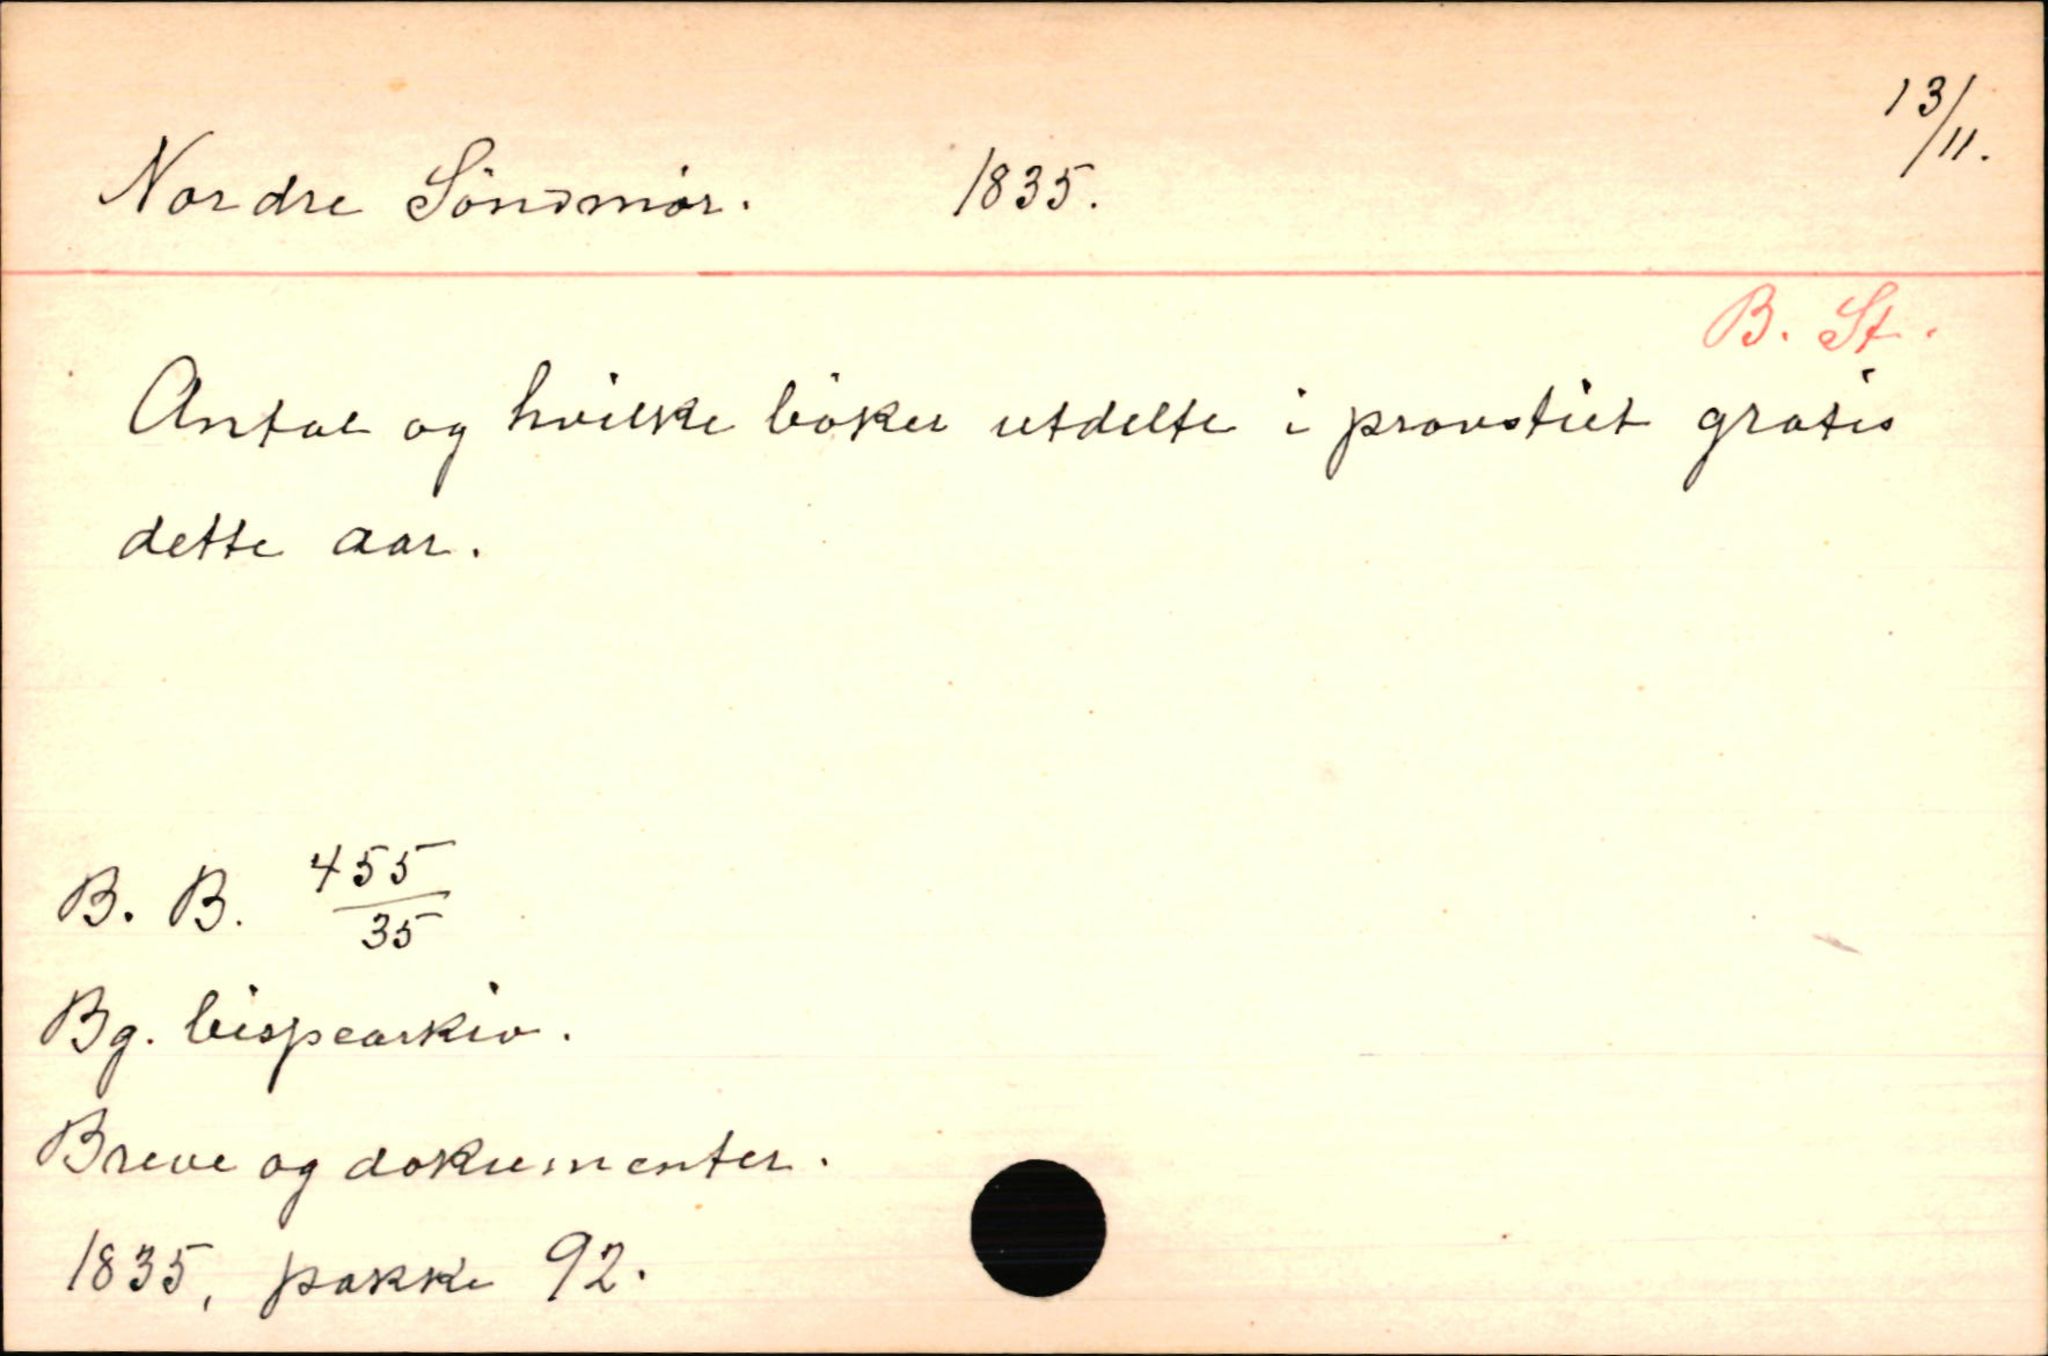 13/11.
Nordre Söndmör. 1835.
B. St.
Antal og hvilke böker utdelte i provstiet gratis
dette aar.
B. B. 455/35
Bg. bispearkiv.
Breve og dokumenter.
1835, pakke 92.